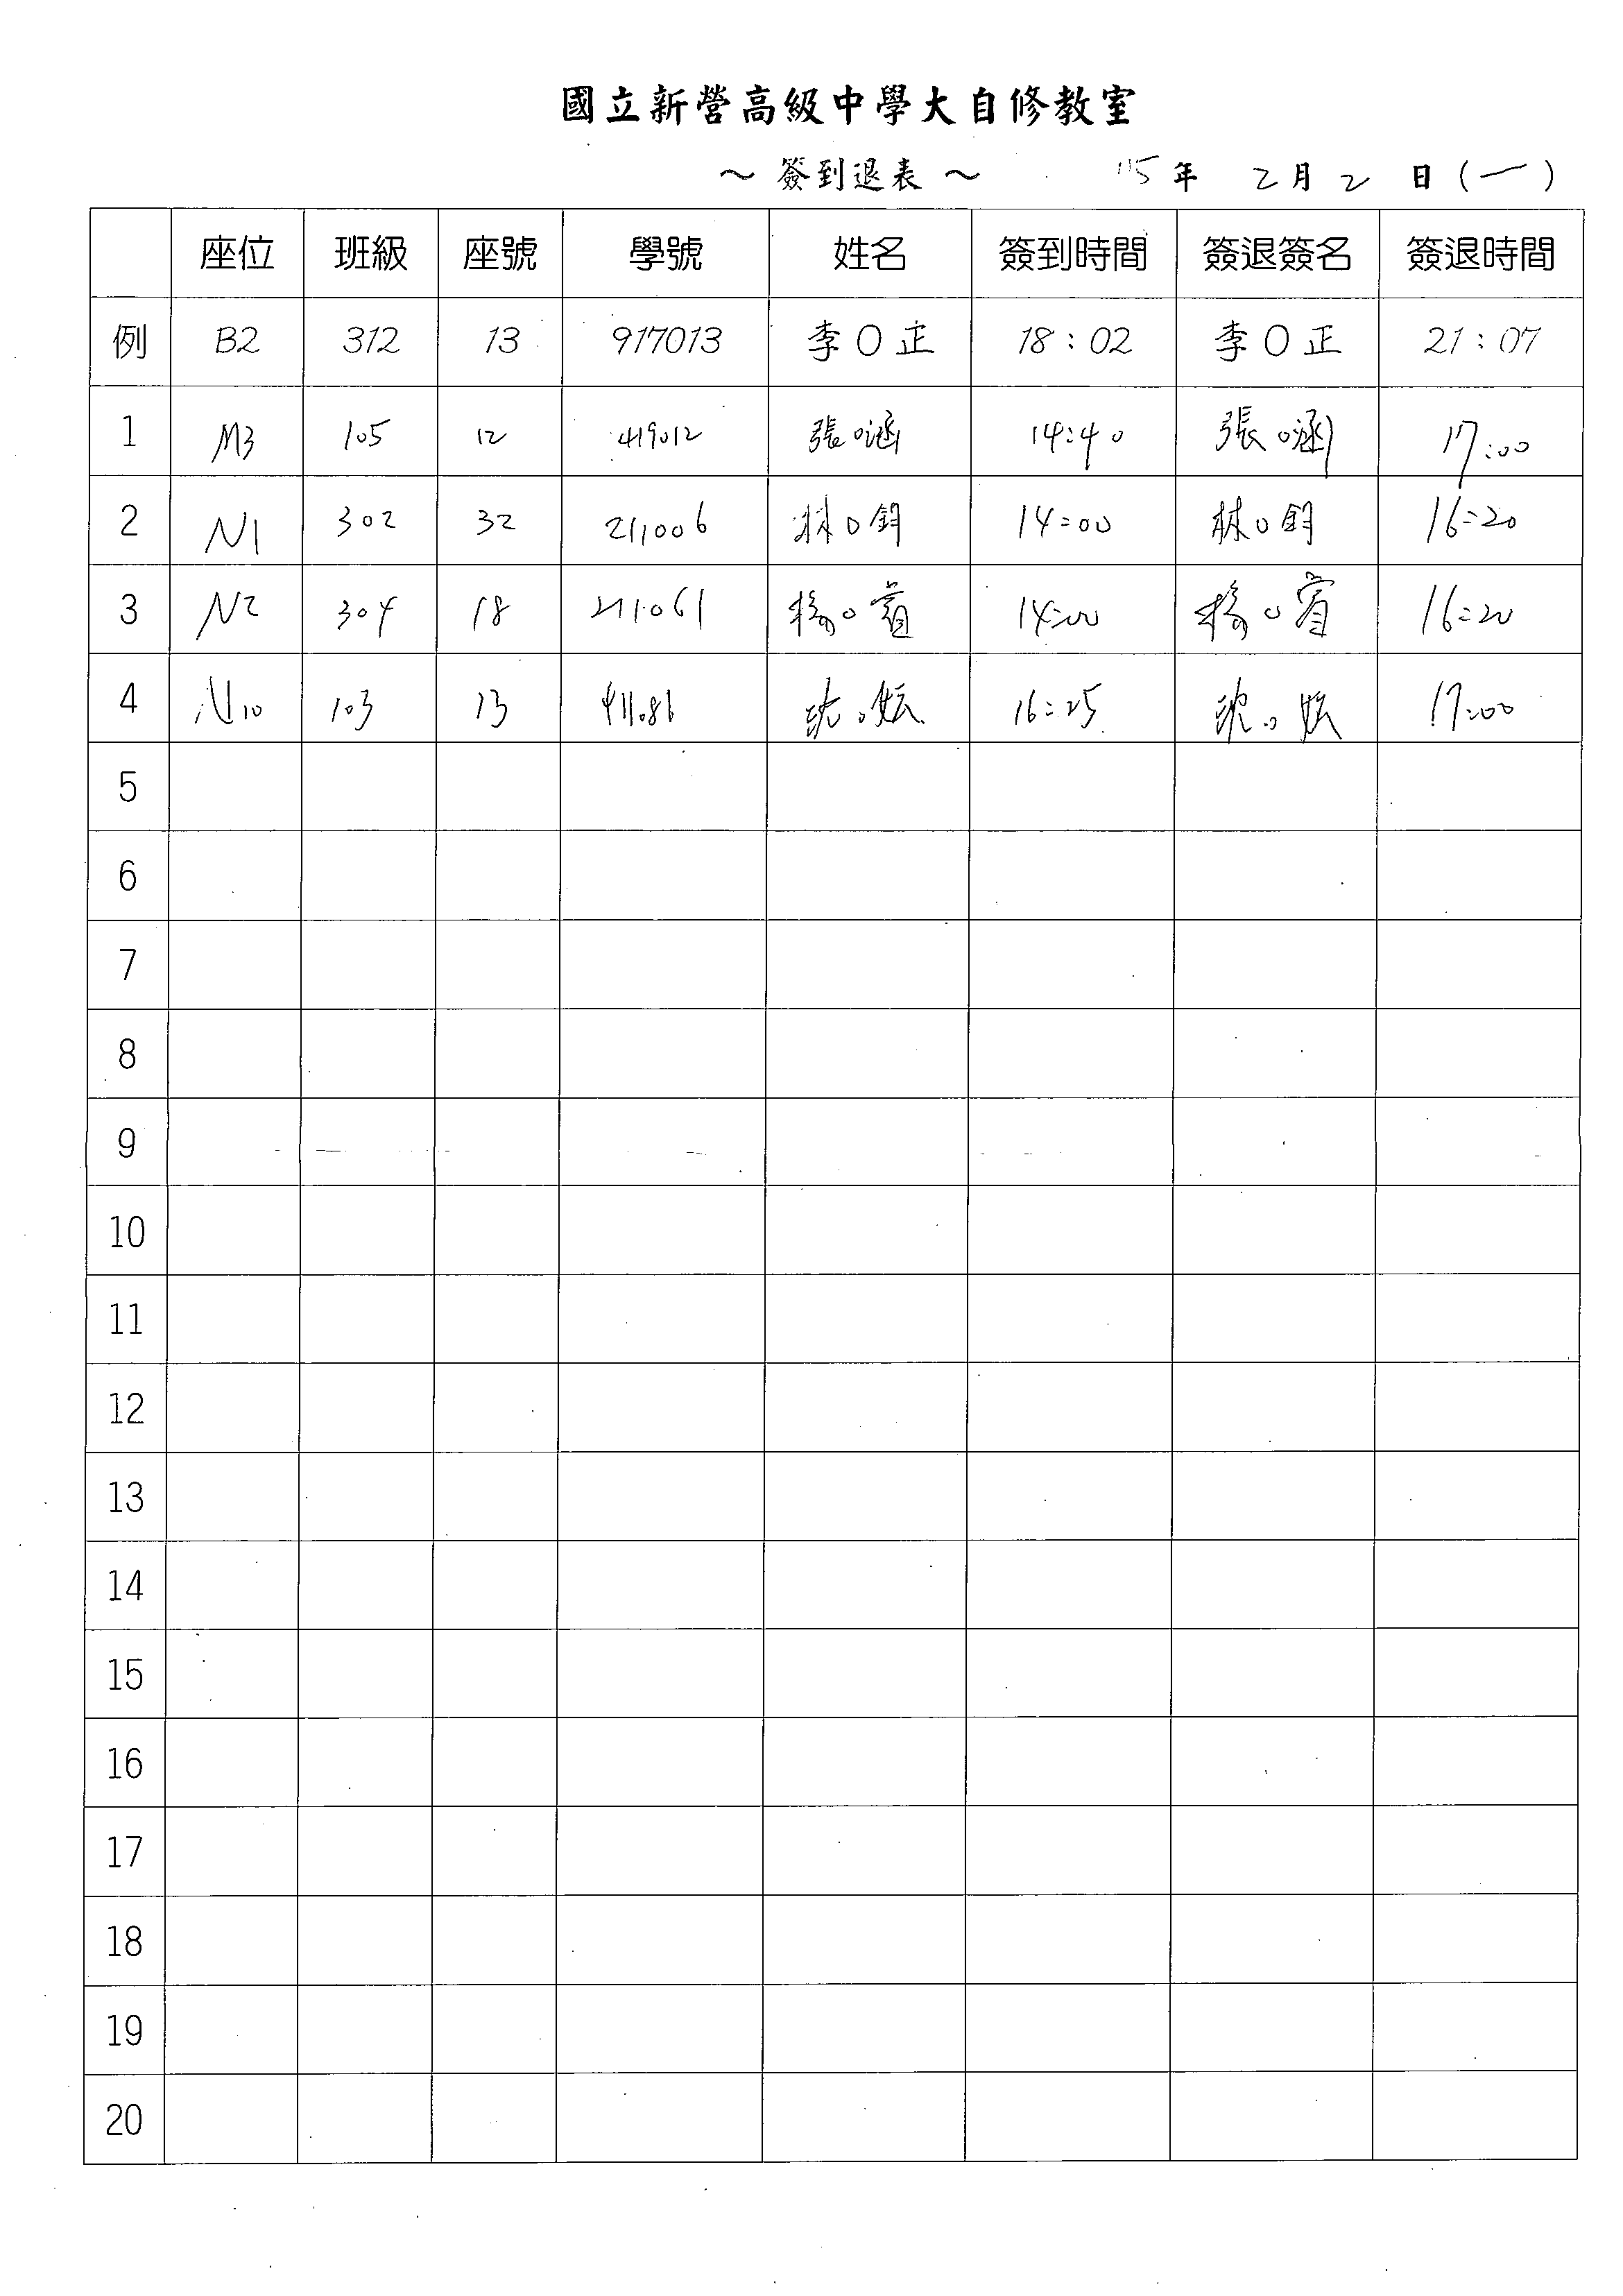 國立新營高級中學大自修教室
～ 簽到退表 ～ 115 年 2 月 2 日 (一)
座位 班級 座號 學號 姓名 簽到時間 簽退簽名 簽退時間
例 B2 312 13 917013 李O正 18:02 李O正 21:07
1 M3 105 12 419012 張O涵 14:40 張O涵 17:00
2 N1 302 32 211006 林O鈅 14:00 林O鈅 16:20
3 N2 304 18 211061 楊O 14:00 楊O 16:20
4 N10 103 13 411086 沈O妘 16:25 沈O妘 17:00
5
6
7
8
9
10
11
12
13
14
15
16
17
18
19
20